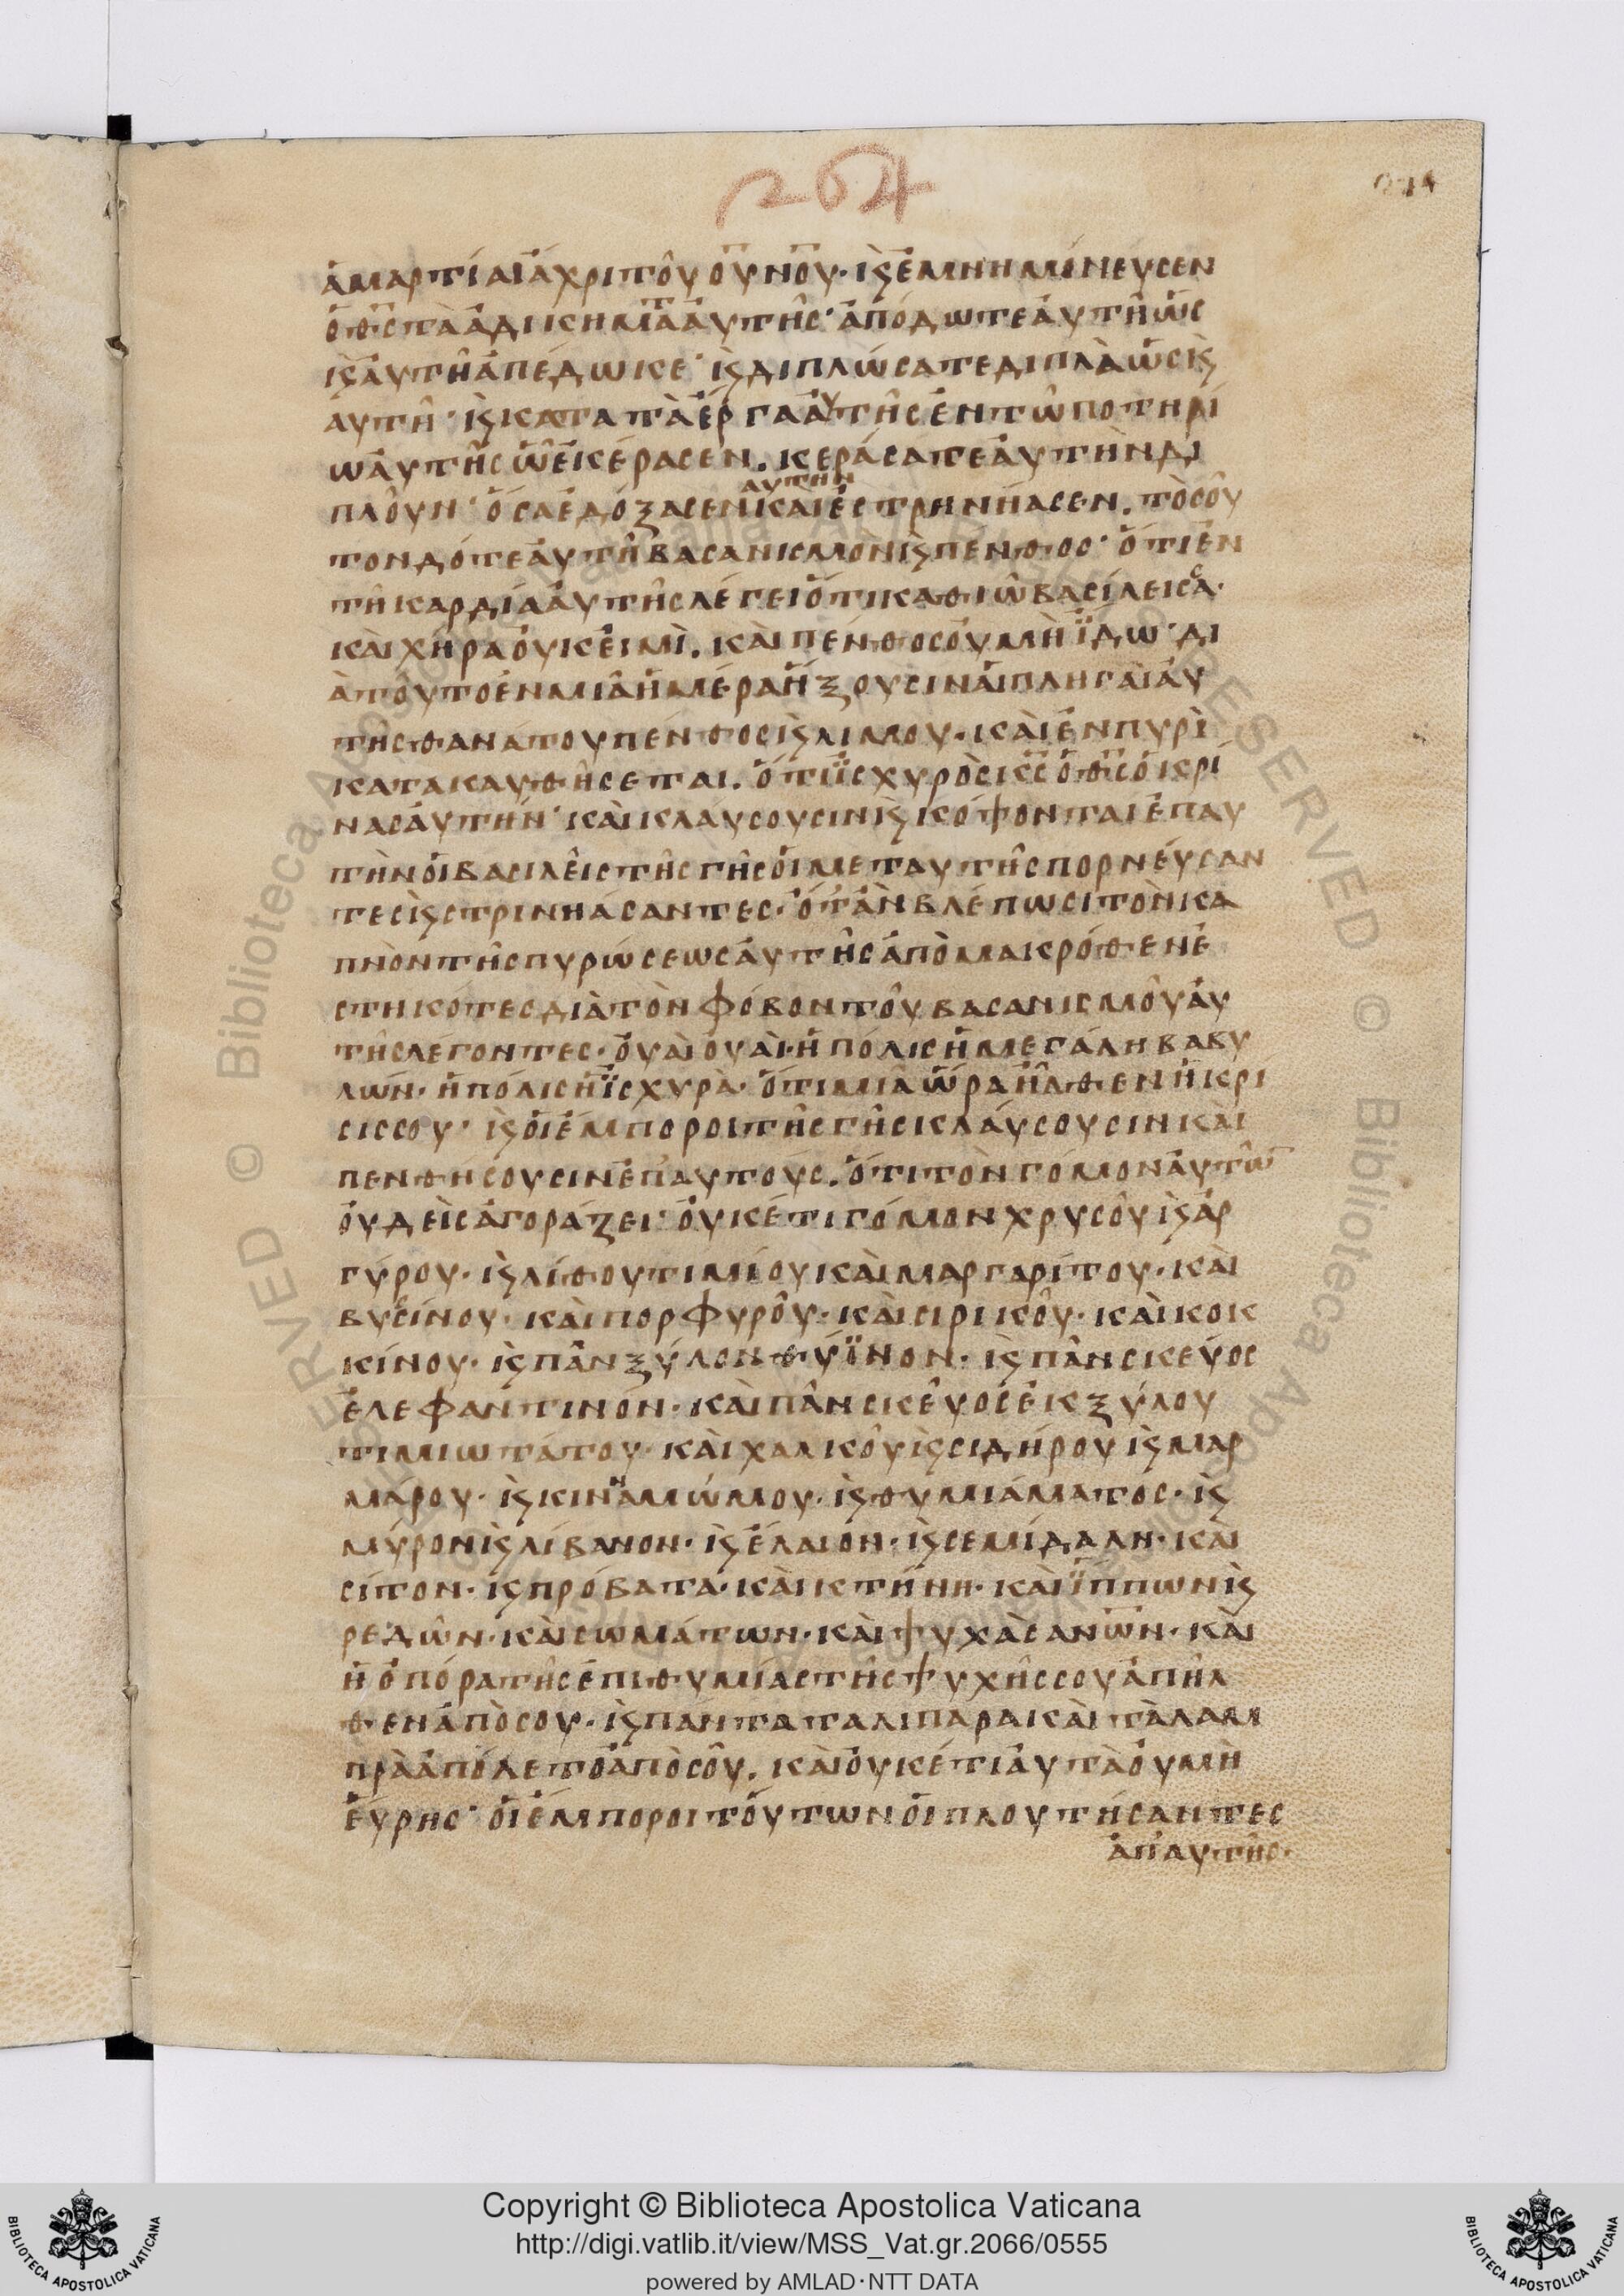 264
ἁμαρτίαι ἄχρι τοῦ ουνου· κ ἐμνημόνευσεν
ὁ θς τὰ ἀδικήματα αὐτῆς· ἀπόδωτε αὐτῆ ὡς
κ αὐτὴ ἀπέδωκε· κ διπλώσατε διπλὰ ὡς κ
αὐτὴ· κ κατα τὰ ἔργα αὐτῆς ἐν τῶ ποτηρί
ω αὐτῆς ὧ ἐκέρασεν. κεράσατε αὐτὴν δι
πλοῦν· ὅσα ἐδόξασεν αυτην καὶ ἐστρηνήασεν. τὸσοῦ
τον δότε αὐτῆ βασανισμὸν κ πένθος· ὅτι ἐν
τῆ καρδία αὐτῆς λέγει ὅτι καθιῶ βασίλεισσα·
καὶ χήρα οὐκ εἰμὶ. καὶ πένθος οὐ μὴ ἴδω· δι
ὰ τοῦτο ἐν μιᾶ ἡμέρα ἥξουσιν αἱ πληγαὶ αὐ
τῆς θανάτου πένθος κ λιμου· καὶ ἐν πυρὶ
κατακαυθήσεται. ὅτι ἰσχυρὸς κς ὁ θς ὁ κρί
νας αὐτήν· καὶ κλαύσουσιν κ κόψονται ἐπ αυ
τὴν οἱ βασιλεῖς τῆς γῆς οἱ μετ αυτῆς πορνεύσαν
τες κ στρινηάσαντες· ὅτἂν βλέπωσι τὸν κα
πνὸν τῆς πυρώσεως αὐτῆς ἀπὸ μακρόθεν ἑ
στηκότες διὰ τὸν φόβον τοῦ βασανισμοῦ αὐ
τῆς λεγοντες· οὐαὶ οὐαὶ· ἡ πόλις ἡ μεγάλη βαβυ
λών· ἡ πόλις ἡ ἰσχυρὰ· ὅτι μιᾶ ὥρα ἦλθεν ἡ κρι
σις σου· κ οἱ ἔμποροι τῆς γῆς κλαύσουσιν καὶ
πενθησουσιν ἐπ αυτούς. ὅτι τὸν γόμον αὐτῶ
οὐδεὶς ἀγοράζει· οὐκέτι γόμον χρυσοῦ κ ἀρ
γύρου· κ λίθου τιμίου καὶ μαργαρίτου· καὶ
βυσσίνου· καὶ πορφυροῦ· καὶ σιρικοῦ· καὶ κοκ
κίνου· κ πᾶν ξύλον θύϊνον· κ πᾶν σκεύος
ἐλεφάντινον· καὶ πᾶν σκεῦος ἐκ ξύλου
τιμιωτάτου· καὶ χαλκοῦ κ σιδήρου κ μαρ
μάρου· κ κινναμώμου· κ θυμιάματος· κ
μύρον κ λίβανον· κ ἔλαιον· κ σεμίδαλη· καὶ
σίτον· κ πρόβατα· καὶ κτήνη· καὶ ἵππων κ
ρεδῶν· καὶ σωμάτων· καὶ ψυχὰς ανων· καὶ
ἡ ὀπόρα τῆς ἐπιθυμίας τῆς ψυχῆς σου ἀπῆλ
θεν ἀπὸ σου· κ πάντα τα λιπαρα καὶ τὰ λαμ
πρὰ ἀπόλετο ἀπὸ σοῦ. καὶ οὐκέτι αὐτὰ οὐ μὴ
εὕρης· οἱ ἔμποροι τούτων οἱ πλουτήσαντες
ἀπ αυτῆς·
© Biblioteca Apostolica Vaticana
Copyright © Biblioteca Apostolica Vaticana
http://digi.vatlib.it/view/MSS_Vat.gr.2066/0555
powered by AMLAD·NTT DATA
BIBLIOTECA APOSTOLICA VATICANA
BIBLIOTECA APOSTOLICA VATICANA